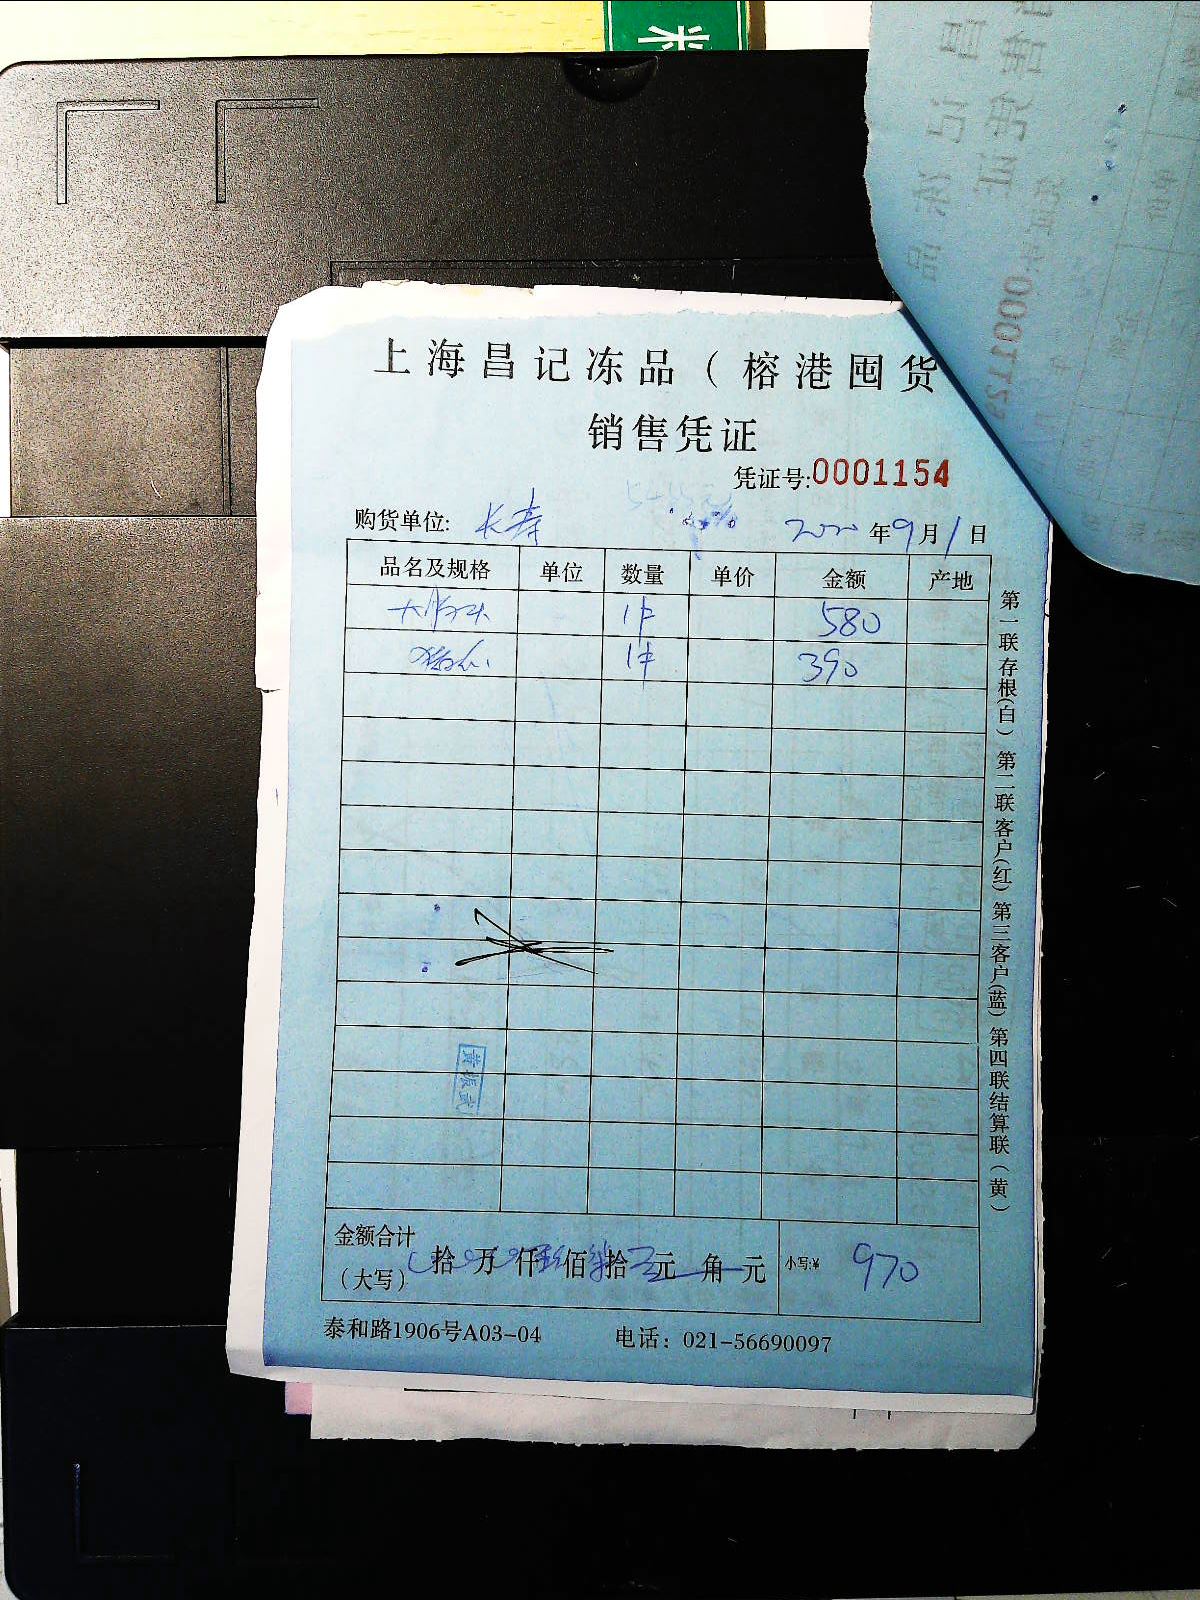 米
上海昌记冻品（榕港囤货
销售凭证
凭证号:0001154
购货单位: 长寿 2020年9月1日
品名及规格 单位 数量 单价 金额 产地
1件 580
1件 390
黄振武
金额合计
（大写） 拾 万 仟 佰 拾 元 角 元 小写:¥ 970
泰和路1906号A03-04 电话：021-56690097
第一联存根(白) 第二联客户(红) 第三客户(蓝) 第四联结算联（黄）
0001153